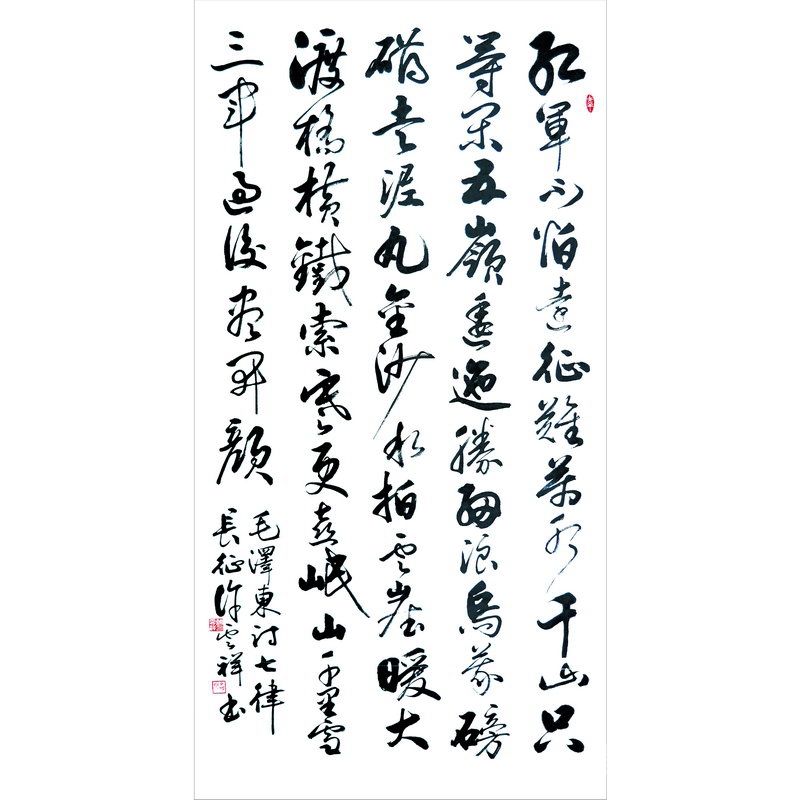 紅軍不怕遠征難萬水千山只
等閑五嶺逶迤騰細浪烏蒙磅
礴走泥丸金沙水拍雲崖暖大
渡橋橫鐵索寒更喜岷山千里雪
三軍過後盡開顏
毛澤東詩七律
長征許雲祥書